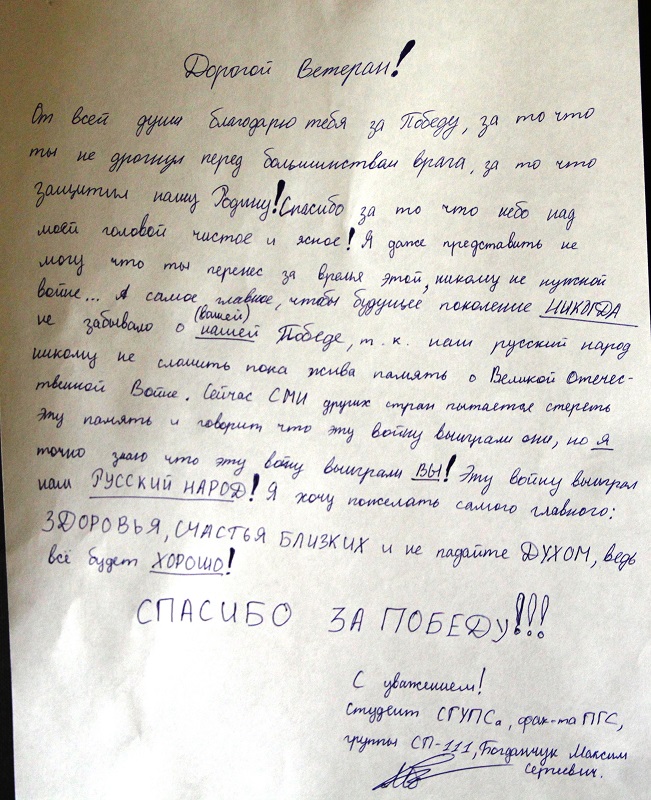 Дорогой Ветеран!
От всей души благодарю тебя за Победу, за то что
ты не дрогнул перед большинством врага, за то что
защитил нашу Родину! Спасибо за то что небо над
моей головой чистое и ясное! Я даже представить не
могу что ты перенес за время этой, никому не нужной
войне... А самое главное, чтобы будущее поколение НИКОГДА
(вашей)
не забывало о нашей Победе, т.к. наш русский народ
никому не сломить пока жива память о Великой Отечес-
твенной Войне. Сейчас СМИ других стран пытается стереть
эту память и говорит что эту войну выиграли они, но я
точно знаю что эту войну выиграли ВЫ! Эту войну выиграл
наш РУССКИЙ НАРОД! Я хочу пожелать самого главного:
ЗДОРОВЬЯ, СЧАСТЬЯ БЛИЗКИХ и не падайте ДУХОМ, ведь
всё будет ХОРОШО!
СПАСИБО ЗА ПОБЕДУ!!!
С уважением!
студент СГУПСа, фак-та ПГС,
группы СП-111, Богданчук Максим
Сергиевич.